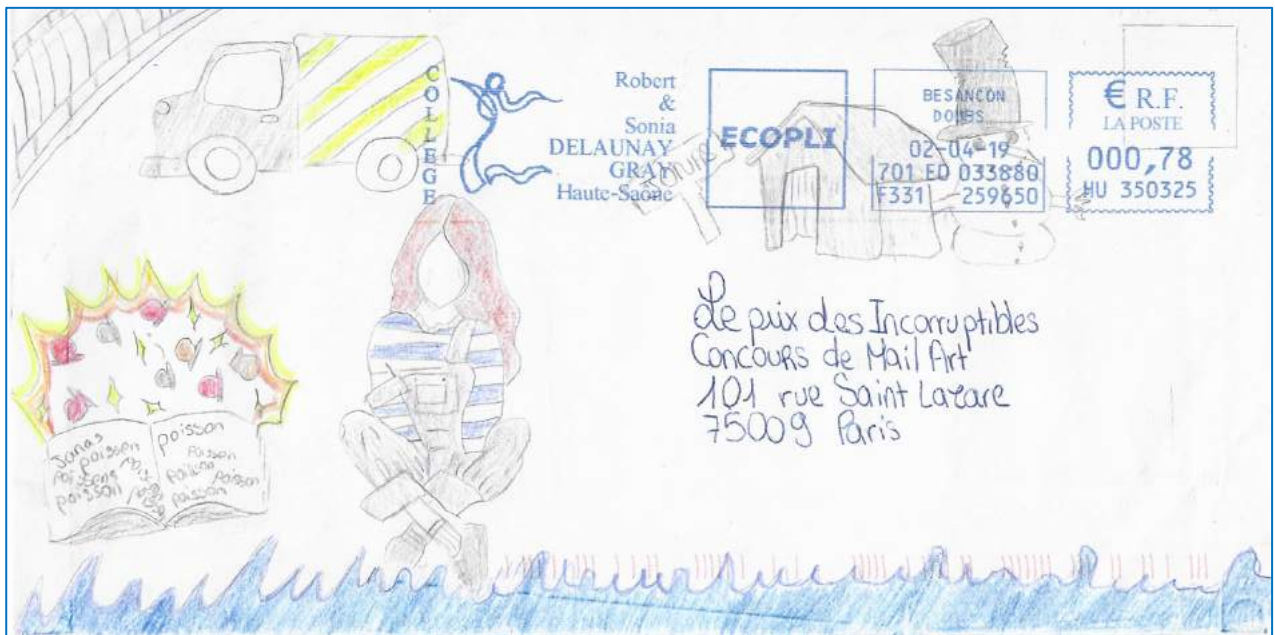 COLLEGE
Robert
&
Sonia
DELAUNAY
GRAY
Haute-Saône
ECOPLI
BESANCON
DOUBS
02-04-19
701 EO 033880
F331 259650
€ R.F.
LA POSTE
000,78
HU 350325
Le prix des Incorruptibles
Concours de Mail Art
101 rue Saint Lazare
75009 Paris
Jonas
poisson
poissons
poisson
poisson
Poisson
Poisson
Poisson
poisson